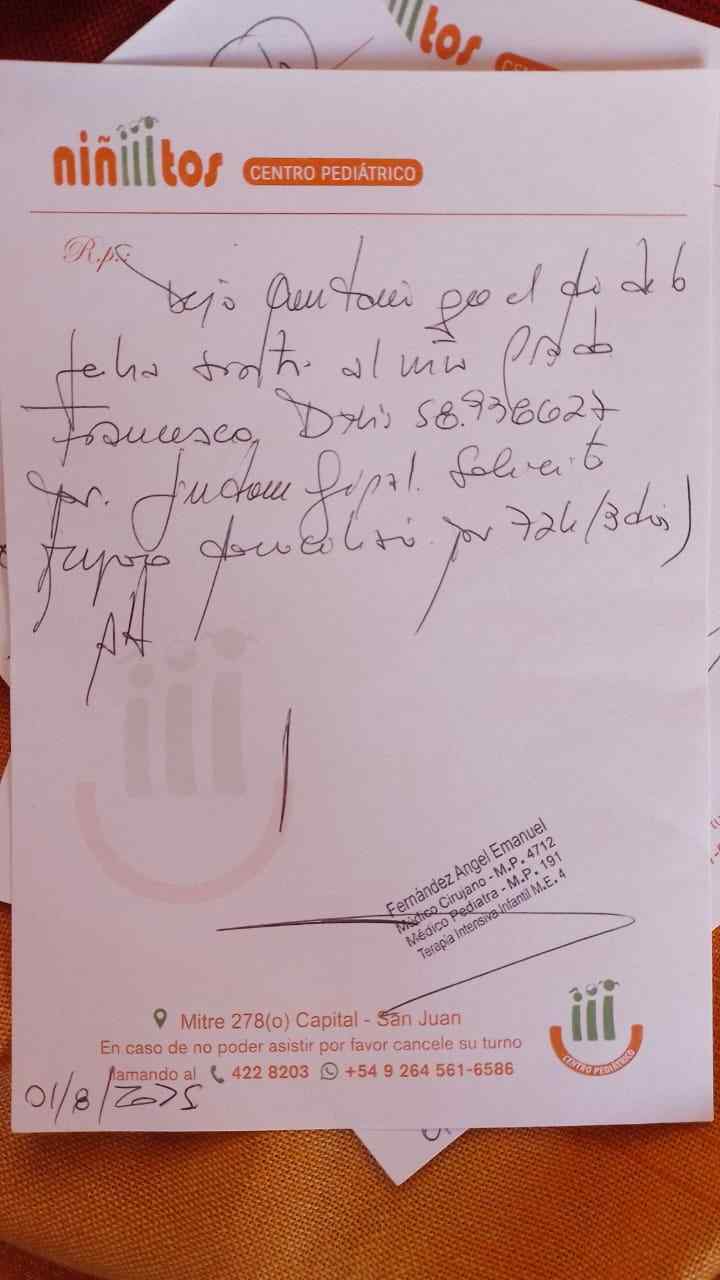 tos
CEN
niñiiitos CENTRO PEDIÁTRICO
R.p.:
Dejo constancia que el día de la
fecha asistí al niño Prado
Francesco, DNI: 58.936627
por. Síndrome Gripal. Solicito
reposo domiciliario por 72h (3 días)
Fernández Angel Emanuel
Médico Cirujano - M.P. 4712
Médico Pediatra - M.P. 191
Terapia Intensiva Infantil M.E. 4
Mitre 278(o) Capital - San Juan
En caso de no poder asistir por favor cancele su turno
llamando al 422 8203 +54 9 264 561-6586
CENTRO PEDIÁTRICO
01/8/2025